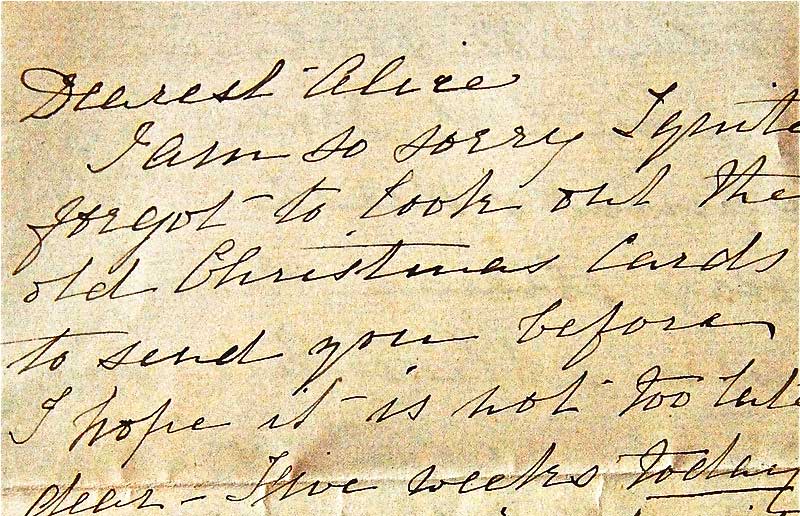 Dearest Alice
I am so sorry I quite
forgot to look out the
old Christmas Cards
to send you before
I hope it is not too late
dear - Five weeks today